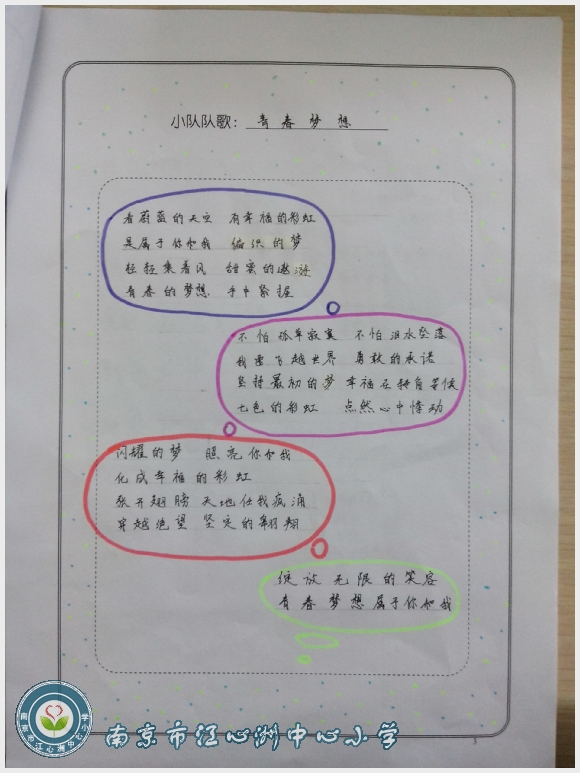 小队队歌：青春梦想
看蔚蓝的天空 有幸福的彩虹
是属于你和我 编织的梦
轻轻乘着风 甜蜜的遨游
青春的梦想 手中紧握
不怕孤单寂寞 不怕泪水坠落
我要飞越世界 勇敢的承诺
坚持最初的梦 幸福在转角等候
七色的彩虹 点燃心中悸动
闪耀的梦 照亮你和我
化成幸福的彩虹
张开翅膀 天地任我疯涌
穿越绝望 坚定的翱翔
绽放无限的笑容
青春梦想属于你和我
南京市江心洲中心小学
南京市江心洲中心小学